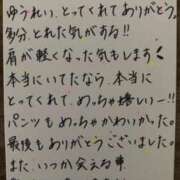 ゆうれい、とってくれてありがとう。
多分、とれた気がする!!
肩が軽くなった気もします
本当にいてたなら、本当に
とってくれて、めっちゃ嬉しいー!!
パンツもめっちゃかわいかった。
最後もありがとうございました。
また、いつか会える事